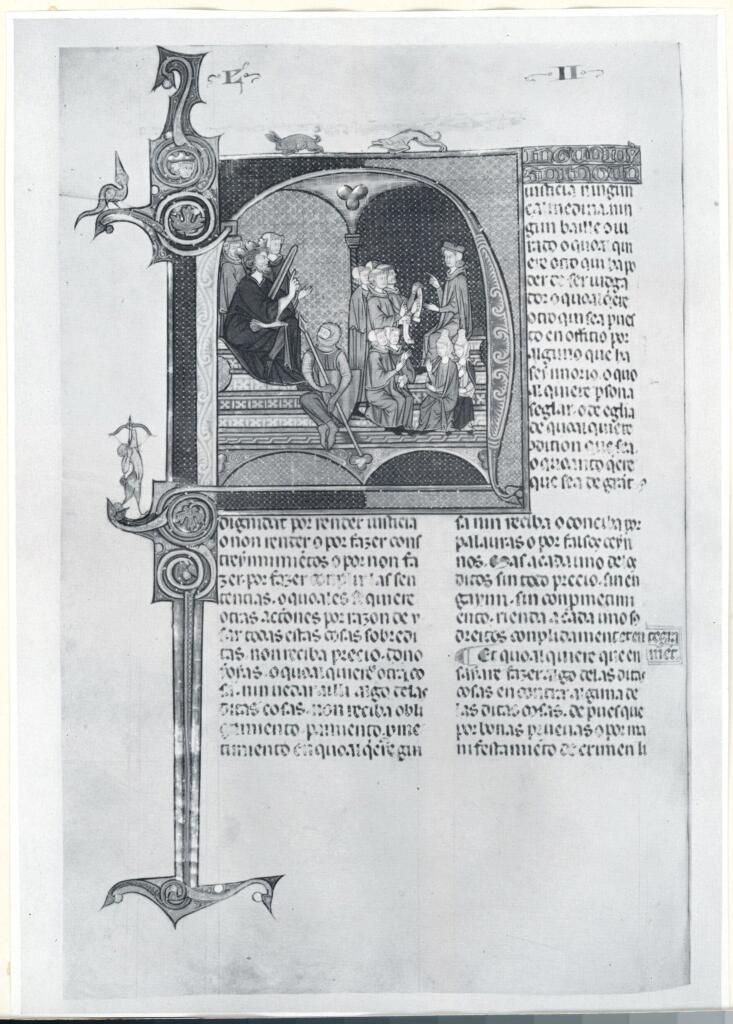 L II
iusticia ningun
çalmedina nin
gun baille o iu
rado o quoal qui
ere otro qui ha po
der de ser iudga
dor o quoal qere
otro qui sea pues
to en officio por
alguno que ha
o quo
al quiere psona
seglar. o de eglia
de quoal quiere
9dition que sea.
o quanto qere
que sea de grat
dignidat por render iusticia
o non render o por fazer cons
o por non fa
zer. por fazer las sen
tencias. o quoales se quiere
otras actiones por razon de
todas estas cosas sobredi
tas. non reciba precio. dono
o quoal quiere otra co
sa. nin algo delas
ditas cosas. non reciba obli
gamiento. paramiento. pme
timiento en quoal qere gui
sa nin reciba o conciba por
palauras o por falsos
nos. Mas a cada uno delos
ditos sin todo precio. sin en
ganno. sin
ento. rienda a cada uno so
dreitos conplidament et en tegra
met.
Et quoal quiere que en
saiare fazer algo delas ditas
cosas en contra alguna de
las ditas cosas. de pues que
por bonas prueuas o por ma
nifestamieto de crimen li